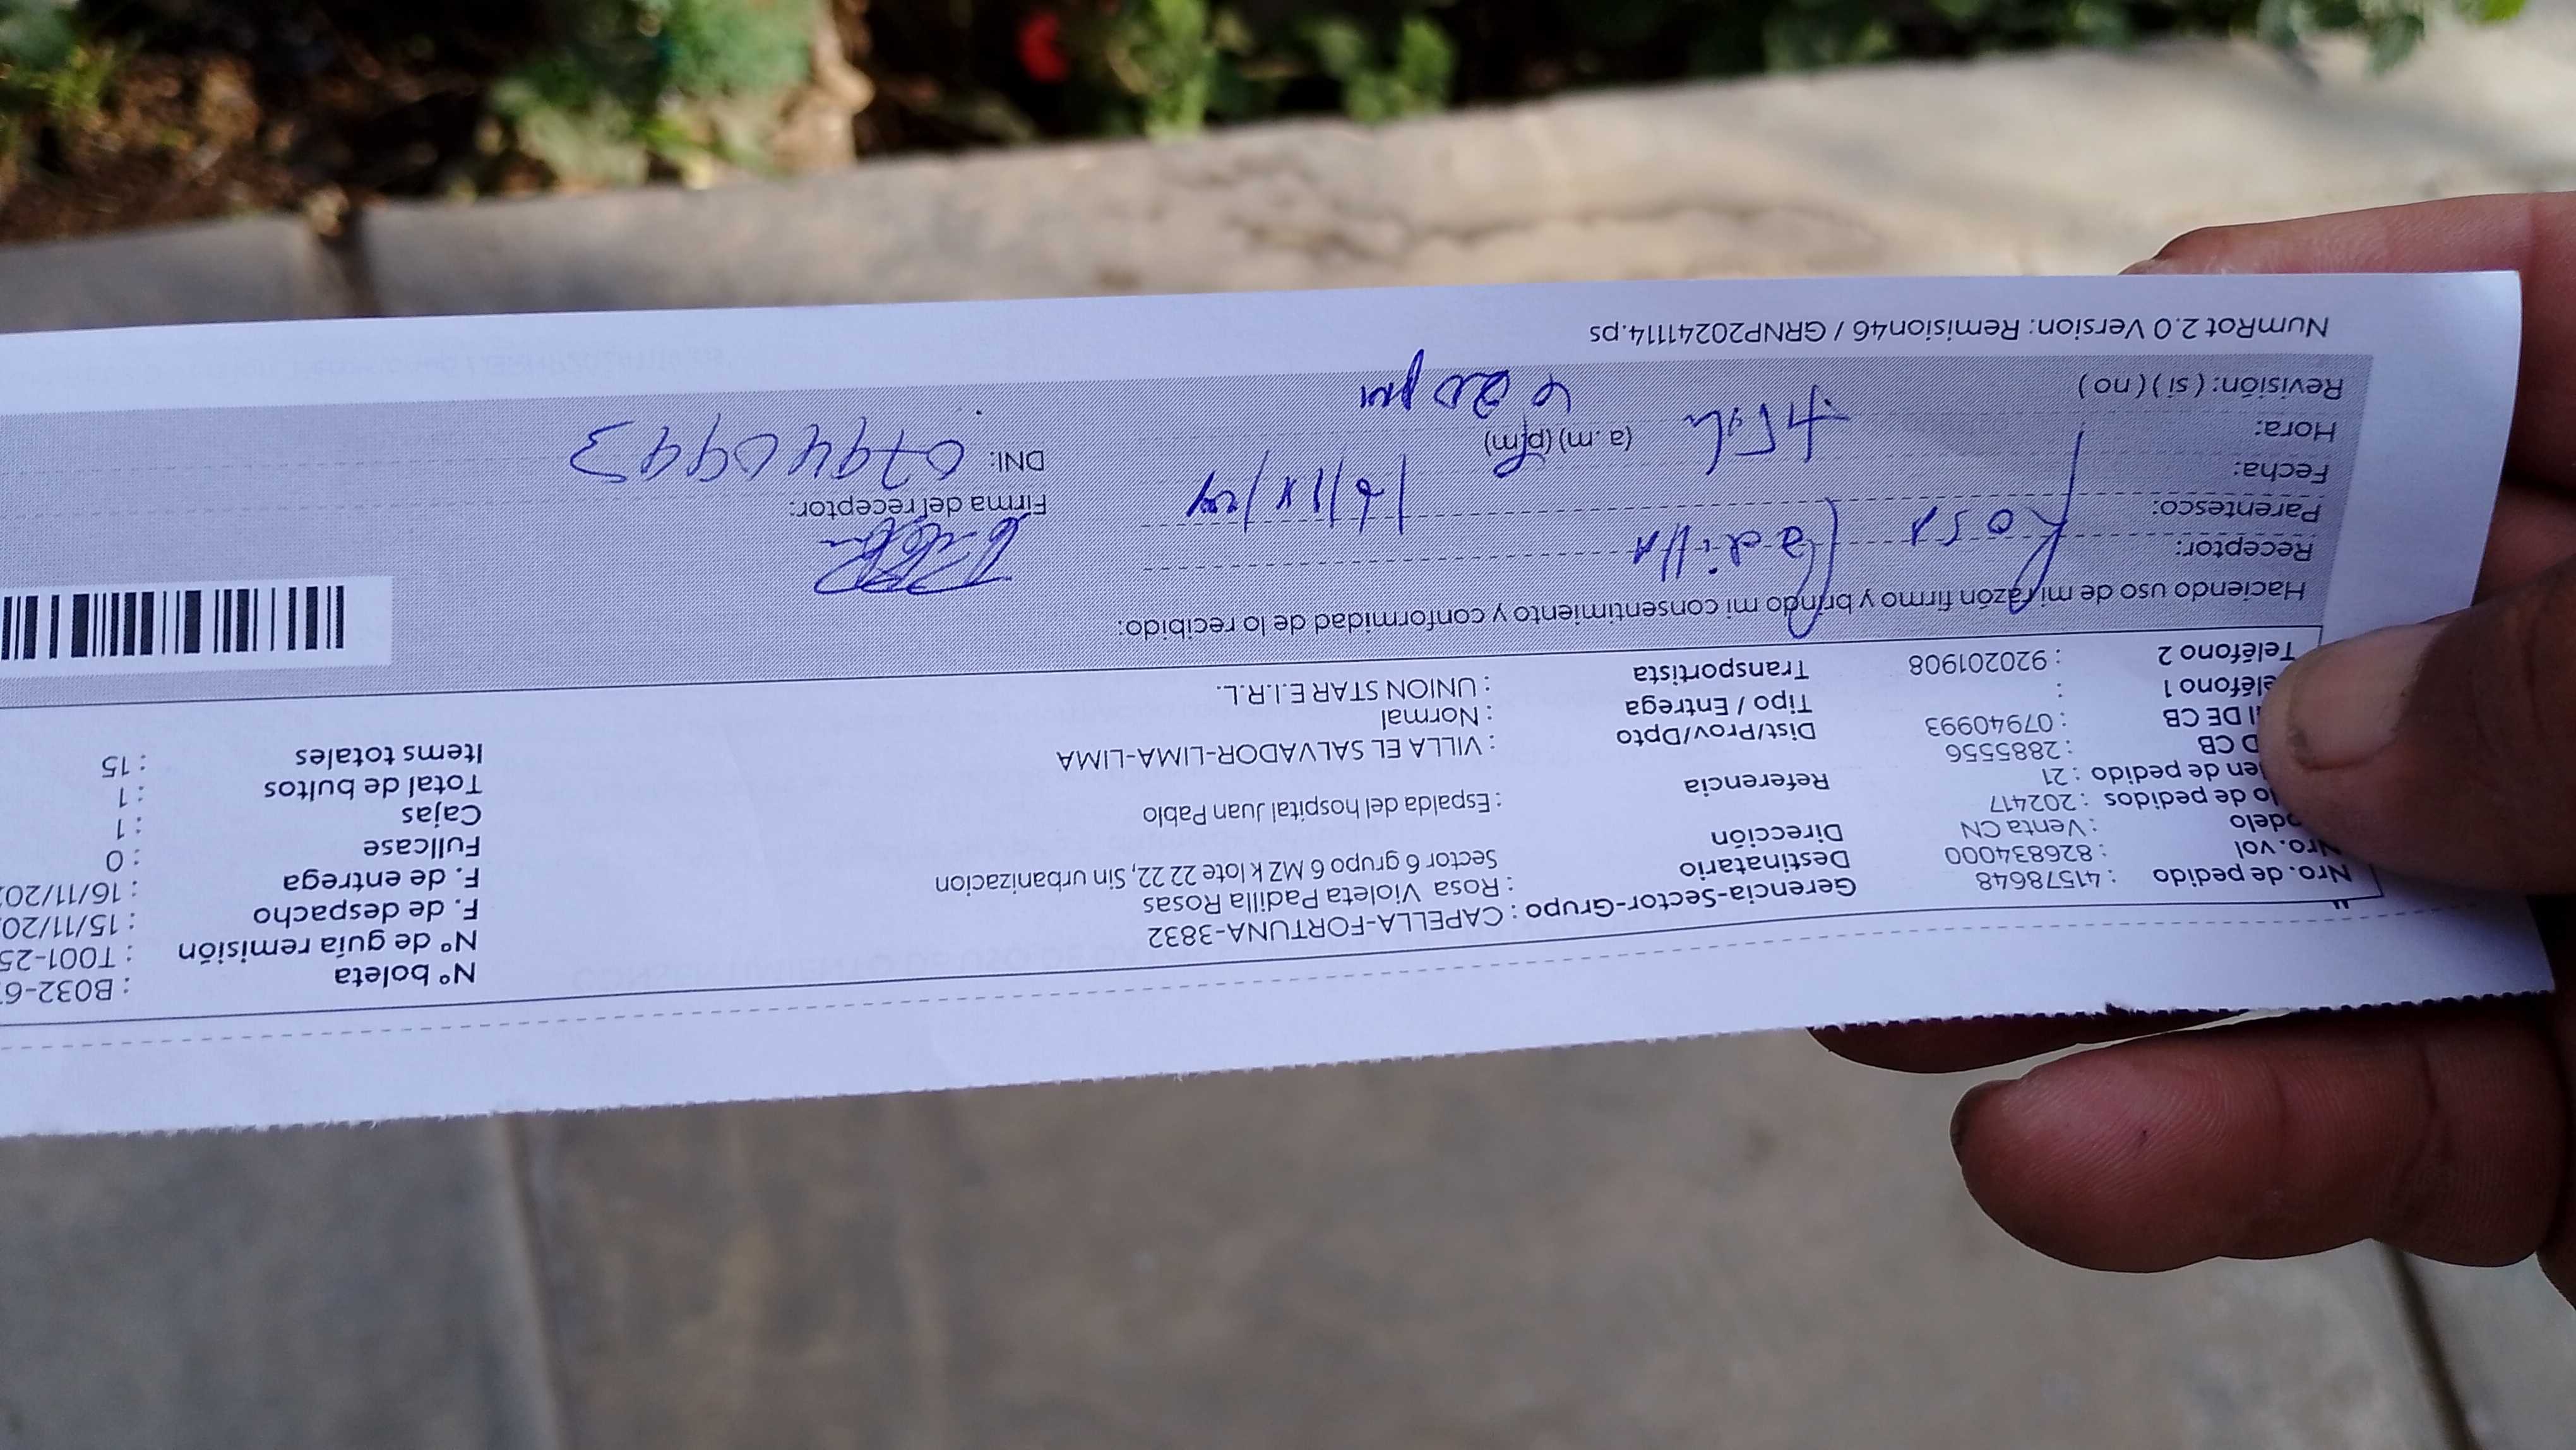 Nro. de pedido : 41578648 Gerencia-Sector-Grupo : CAPELLA-FORTUNA-3832 Nº boleta : B032-6
Nro. vol : 826834000 Destinatario : Rosa Violeta Padilla Rosas Nº de guía remisión : T001-25
odelo : Venta CN Dirección Sector 6 grupo 6 MZ k lote 22 22, Sin urbanizacion F. de despacho : 15/11/20
lo de pedidos : 202417 F. de entrega : 16/11/20
en de pedido : 21 Referencia : Espalda del hospital Juan Pablo Fullcase : 0
D CB : 2885556 Cajas : 1
I DE CB : 07940993 Dist/Prov/Dpto : VILLA EL SALVADOR-LIMA-LIMA Total de bultos : 1
eléfono 1 : Tipo / Entrega : Normal Items totales : 15
Teléfono 2 : 920201908 Transportista : UNION STAR E.I.R.L.
Haciendo uso de mi razón firmo y brindo mi consentimiento y conformidad de lo recibido:
Receptor: Rosa Padilla
Parentesco: Firma del receptor:
Fecha: 16/11/24 DNI: 07940993
Hora: (a.m) (p.m)
Revisión: ( si ) ( no ) 20 pm
NumRot 2.0 Version: Remision46 / GRNP20241114.ps